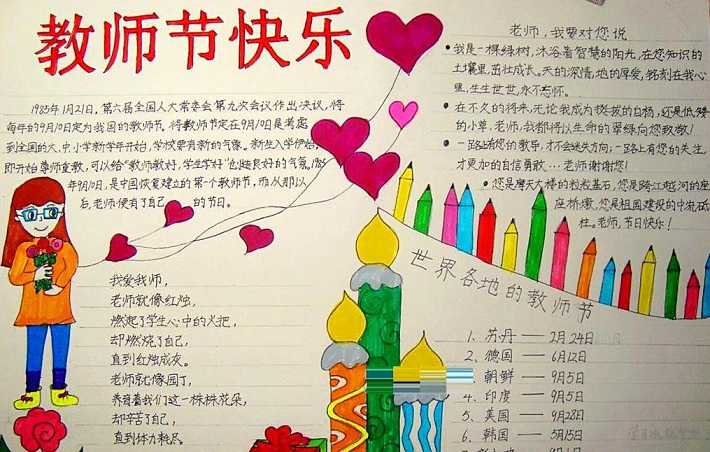 教师节快乐
1985年1月21日,第六届全国人大常委会第九次会议作出决议,将
每年的9月10日定为我国的教师节。将教师节定在9月10日是考虑
到全国的大、中小学新学年开始,学校要有新的气象。新生入学伊始,
即开始尊师重教,可以给"教师教好,学生学好"创造良好的气氛。1985
年9月10日,是中国恢复建立的第一个教师节,而从那以
后,老师便有了自己的节日。
我爱我师,
老师就像红烛,
燃起了学生心中的火把,
却燃烧了自己,
直到红烛成灰。
老师就像园丁,
养育着我们这一株株花朵,
却辛苦了自己,
直到体力耗尽
老师,我要对您说
我是一棵绿树,沐浴着智慧的阳光,在您知识的
土壤里,茁壮成长。天的深情,地的厚爱,铭刻在我心
里,生生世世,永不忘怀。
在不久的将来,无论我成为挺拔的白杨,还是低矮
的小草,老师,我都将以生命的翠绿向您致敬!
一路上有您的教导,才不会迷失方向;一路上有您的关注,
才更加的自信勇敢...老师谢谢您!
您是摩天大楼的粒粒基石,您是跨江越河的座
座桥墩,您是祖国建设的中流砥
柱。老师,节日快乐!
世界各地的教师节
1、苏丹——2月24日
2、德国——6月12日
朝鲜——9月5日
4、印度——9月5日
5、美国——9月28日
6、韩国——5月15日